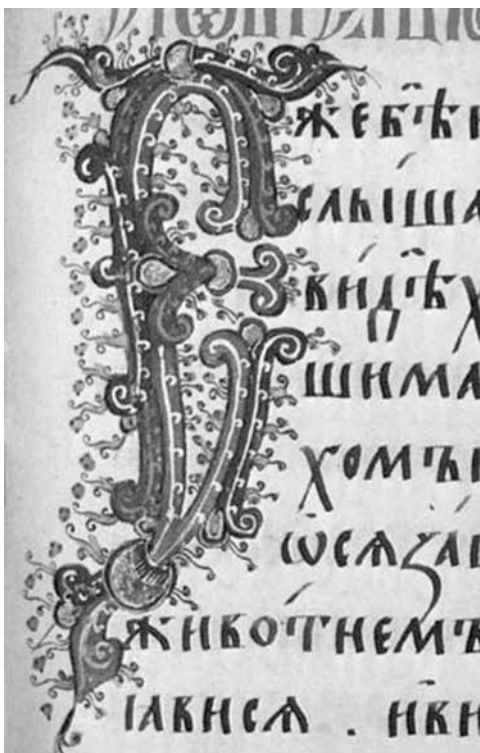 Ежебѣ и
слыша
видѣх
шима
хомъ
ѡсѧꙁа
животнемъ
ꙗвисѧ . иви